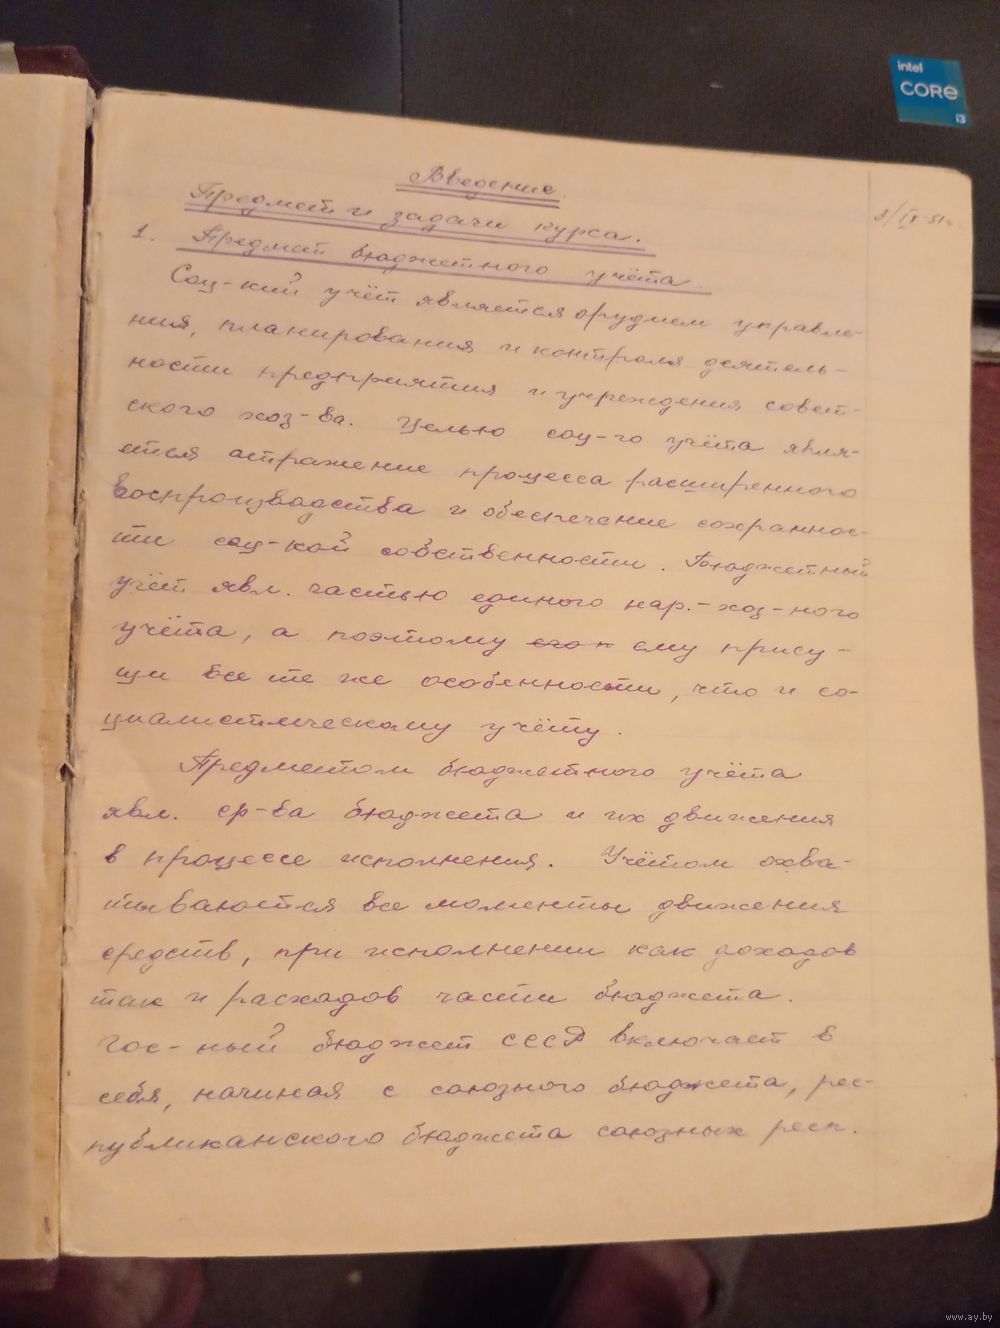 intel
CORE
i3
Введение.
3/IX-51г.
Предмет и задачи курса.
1. Предмет бюджетного учёта.
Соц-кий учёт является орудием управле-
ния, планирования и контроля деятель-
ности предприятия и учреждения совет-
ского хоз-ва. Целью соц-го учёта явля-
ется отражение процесса расширенного
воспроизводства и обеспечение сохраннос-
ти соц-кой собственности. Бюджетный
учёт явл. частью единого нар.-хоз-ного
учёта, а поэтому ему прису-
щи все те же особенности, что и со-
циалистическому учёту.
Предметом бюджетного учёта
явл. ср-ва бюджета и их движения
в процессе исполнения. Учётом охва-
тываются все моменты движения
средств, при исполнении как доходов
так и расходов части бюджета.
Гос-ный бюджет СССР включает в
себя, начиная с союзного бюджета, рес-
публиканского бюджета союзных респ.
www.ay.by